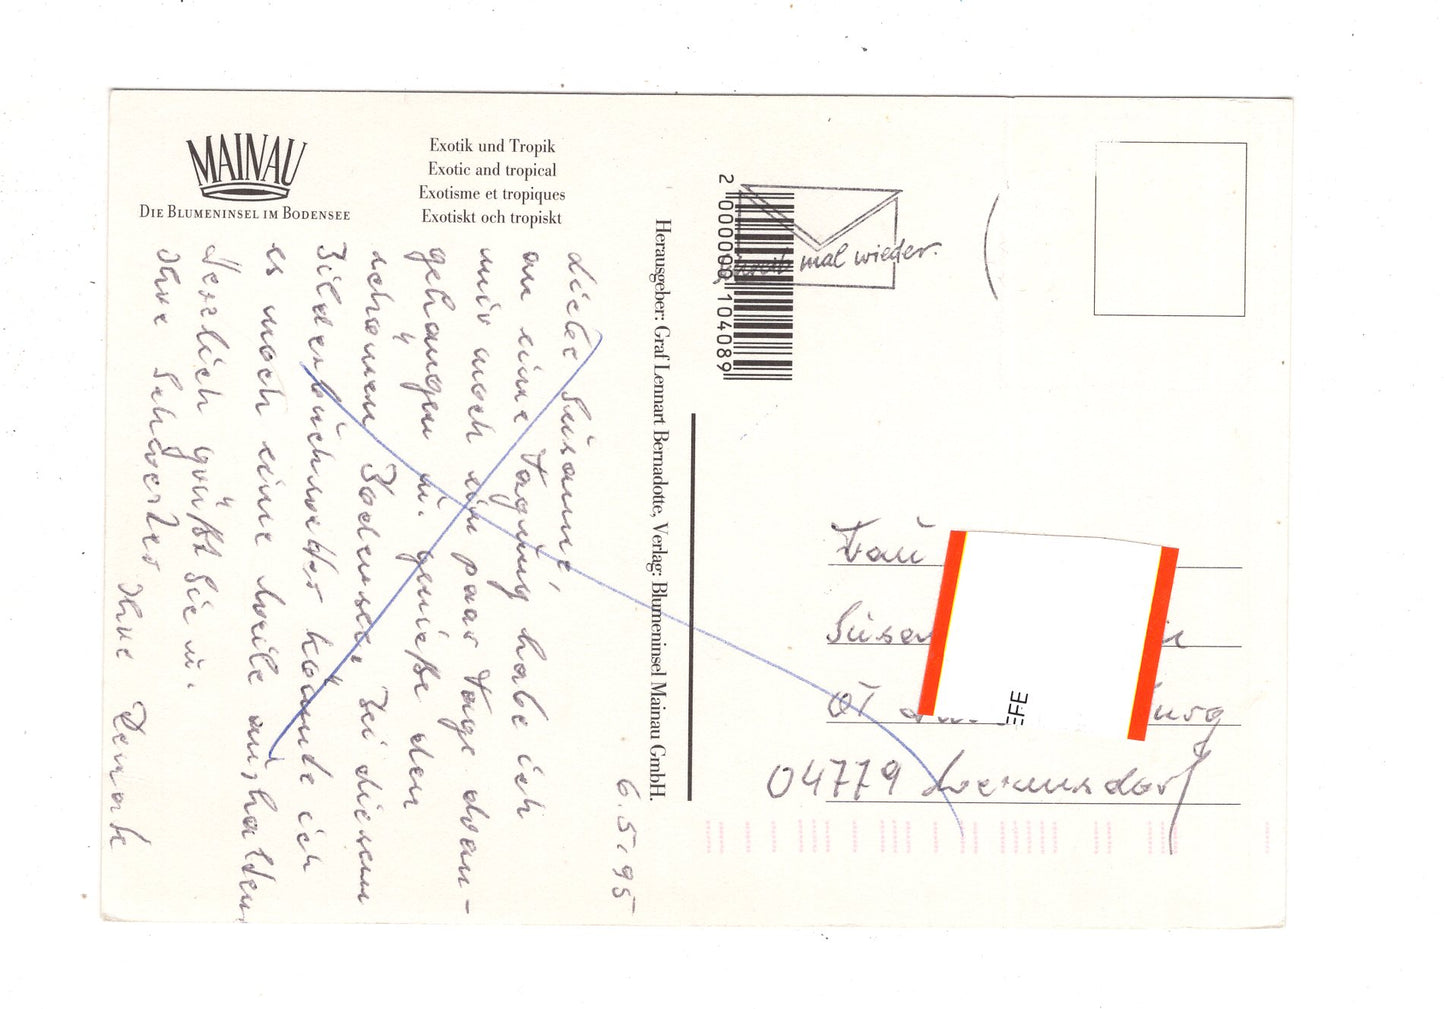 MAINAU
DIE BLUMENINSEL IM BODENSEE
Exotik und Tropik
Exotic and tropical
Exotisme et tropiques
Exotiskt och tropiskt
6.5.95
Liebe Susanne,
an eine Tagung habe ich
mir noch ein paar Tage dran-
gehängt u. genieße den
schönen Bodensee. Bei diesem
Bilderbuchwetter könnte ich
es noch eine Weile aushalten.
Herzlich grüßt Sie u.
Ihre Schwester Ihre Renate
Herausgeber: Graf Lennart Bernadotte, Verlag: Blumeninsel Mainau GmbH.
2 000000 104089
mal wieder.
Frau
Susan
OT
urg
EFE
04779 Wermsdorf